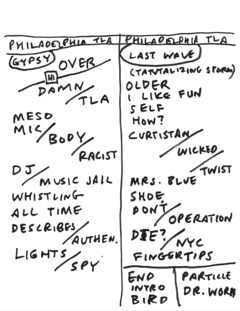 PHILADELPHIA TLA
GYPSY OVER
DAMN
TLA
MESO
MIC
BODY
RACIST
DJ
MUSIC JAIL
WHISTLING
ALL TIME
DESCRIBES
AUTHEN.
LIGHTS
SPY
PHILADELPHIA TLA
LAST WAVE
(TANTALIZING STORM)
OLDER
I LIKE FUN
SELF
HOW?
CURTISTAN
WICKED
TWIST
MRS. BLUE
SHOE
DON'T
OPERATION
DIE?
NYC
FINGERTIPS
END
INTRO
BIRD
PARTICLE
DR. WORM